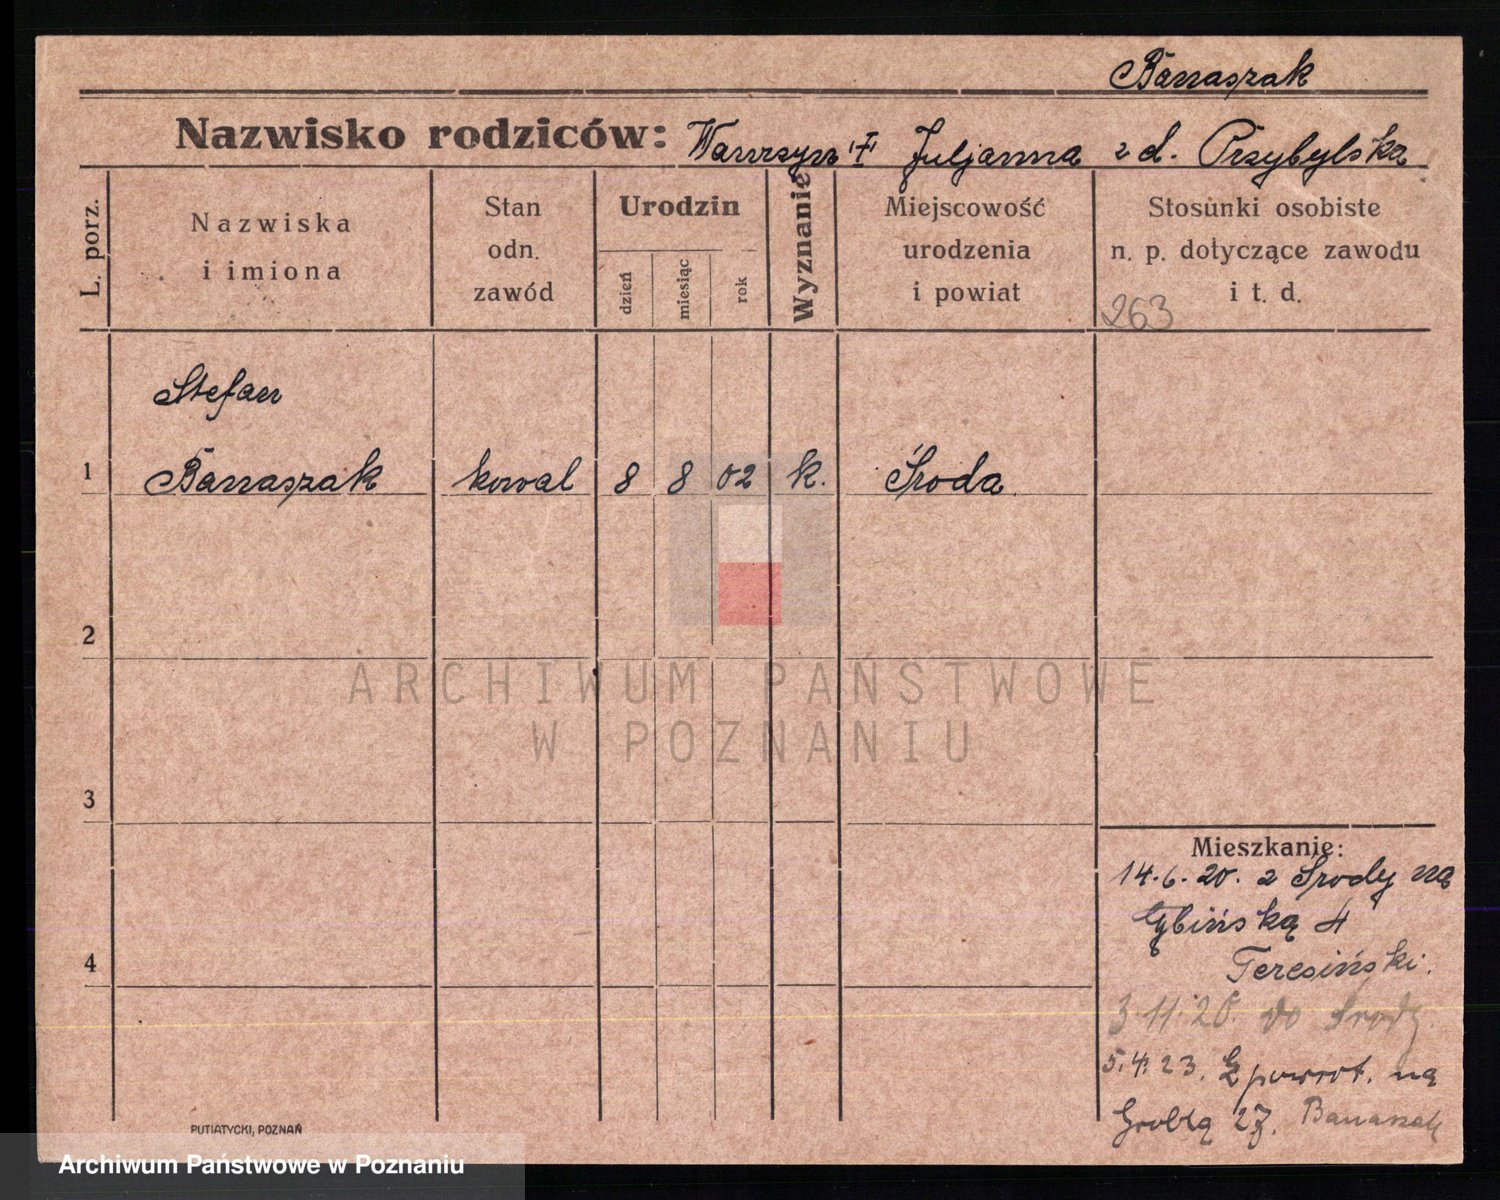 Banaszak
Nazwisko rodziców: Wawrzyn i Juljanna z d. Przybylska
L. porz.
Nazwiska
i imiona
Stan
odn.
zawód
Urodzin
dzień
miesiąc
rok
Wyznanie
Miejscowość
urodzenia
i powiat
Stosunki osobiste
n. p. dotyczące zawodu
i t. d.
263
Stefan
1 Banaszak kowal 8 8 02 k. Środa
2
3
4
Mieszkanie:
14.6.20. z Środy na
Rybińską 4
Teresiński.
3.11.20. do Środy.
5.4.23. Z powrot. na
Groblą 27. Banaszak
PUTIATYCKI, POZNAŃ
ARCHIWUM PAŃSTWOWE
W POZNANIU
Archiwum Państwowe w Poznaniu